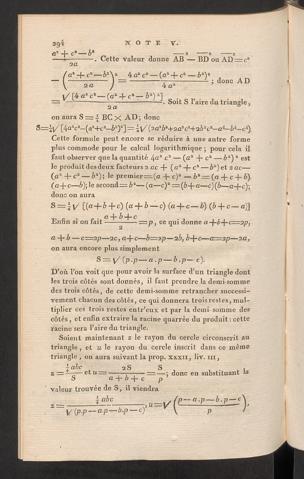 294 NOTE V.
(a² + c² − b²)/2a. Cette valeur donne AB² − BD² ou AD² = c²
− ((a² + c² − b²)/2a)² = (4a²c² − (a² + c² − b²)²)/4a²; donc AD
= √[4a²c² − (a² + c² − b²)²]/2a. Soit S l'aire du triangle,
on aura S = ½ BC × AD; donc
S = ¼√[4a²c² − (a² + c² − b²)²] = ¼√(2a²b² + 2a²c² + 2b²c² − a⁴ − b⁴ − c⁴)
Cette formule peut encore se réduire à une autre forme
plus commode pour le calcul logarithmique; pour cela il
faut observer que la quantité 4a²c² − (a² + c² − b²)² est
le produit des deux facteurs 2ac + (a² + c² − b²) et 2ac −
(a² + c² − b²); le premier = (a + c)² − b² = (a + c + b)
(a + c − b); le second = b² − (a − c)² = (b + a − c)(b − a + c);
donc on aura
S = ¼√{(a + b + c)(a + b − c)(a + c − b)(b + c − a)}
Enfin si on fait (a + b + c)/2 = p, ce qui donne a + b + c = 2p,
a + b − c = 2p − 2c, a + c − b = 2p − 2b, b + c − a = 2p − 2a,
on aura encore plus simplement
S = √(p.p − a.p − b.p − c).
D'où l'on voit que pour avoir la surface d'un triangle dont
les trois côtés sont donnés, il faut prendre la demi-somme
des trois côtés, de cette demi-somme retrancher successi-
vement chacun des côtés, ce qui donnera trois restes, mul-
tiplier ces trois restes entr'eux et par la demi-somme des
côtés, et enfin extraire la racine quarrée du produit: cette
racine sera l'aire du triangle.
Soient maintenant z le rayon du cercle circonscrit au
triangle, et u le rayon du cercle inscrit dans ce même
triangle, on aura suivant la prop. XXXII, liv. III,
z = ¼abc/S et u = 2S/(a + b + c) = S/p; donc en substituant la
valeur trouvée de S, il viendra
z = ¼abc/√(p.p − a.p − b.p − c), u = √((p − a.p − b.p − c)/p).